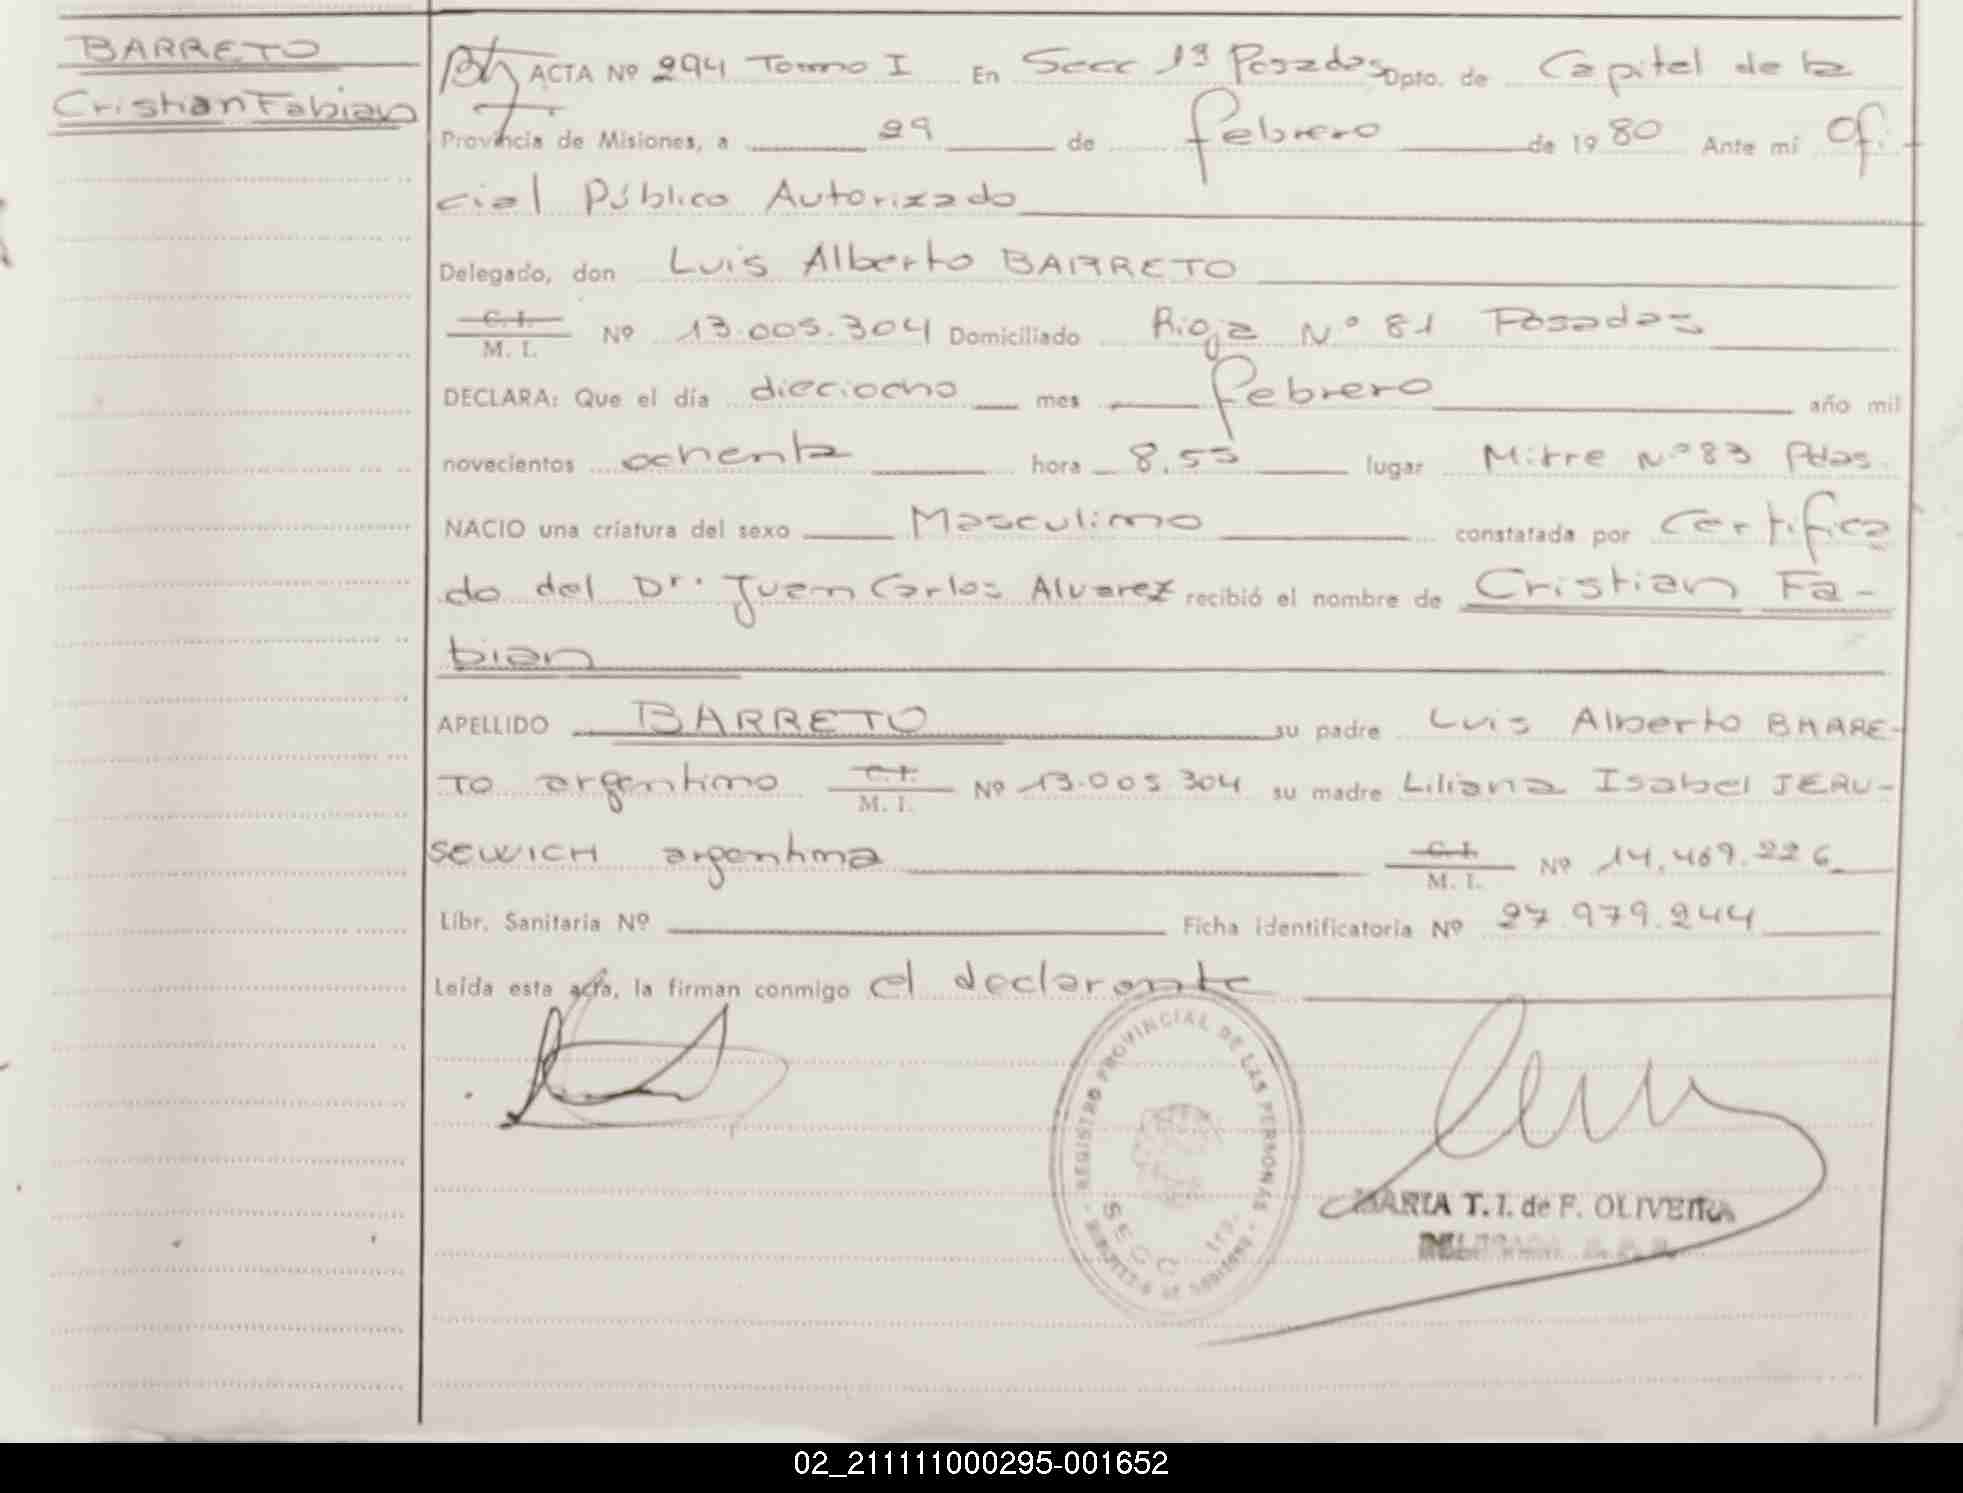 BARRETO
Cristian Fabian
ACTA Nº 294 Tomo I En Secc 1ª Posadas Dpto. de Capital de la
Provincia de Misiones, a 29 de febrero de 1980 Ante mi Ofi-
cial Público Autorizado
Delegado, don Luis Alberto BARRETO
C. I.
M. I. Nº 13.005.304 Domiciliado Rioja Nº 81 Posadas
DECLARA: Que el día dieciocho mes febrero año mil
novecientos ochenta hora 8.55 lugar Mitre Nº 83 Pdas.
NACIO una criatura del sexo Masculino constatada por Certifica
do del Dr. Juan Carlos Alvarez recibió el nombre de Cristian Fa-
bian
APELLIDO BARRETO su padre Luis Alberto BARRE-
TO argentino C. I.
M. I. Nº 13.005.304 su madre Liliana Isabel JERU-
SEWICH argentina C. I.
M. I. Nº 14.469.226
Libr. Sanitaria Nº Ficha identificatoria Nº 27.979.244
Leída esta acta, la firman conmigo el declarante
REGISTRO PROVINCIAL DE LAS PERSONAS
SECC. 1ra.
MARIA T. I. de F. OLIVEIRA
02_211111000295-001652